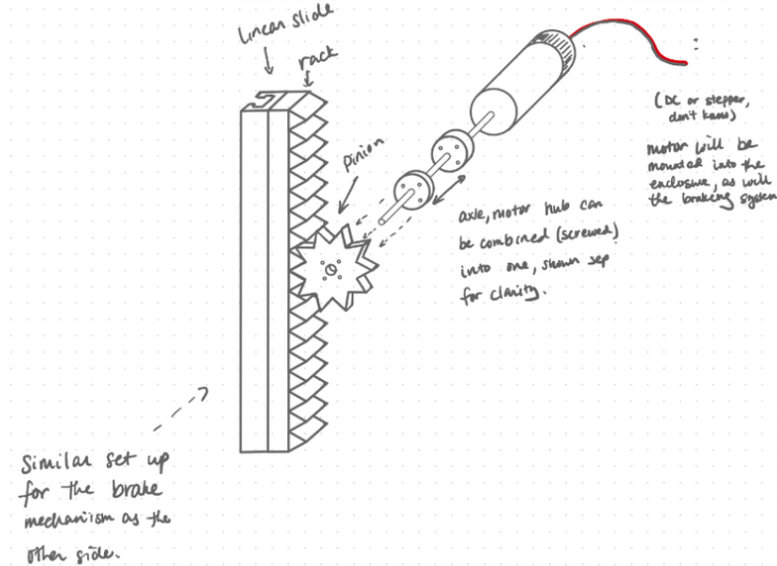 linear slide
rack
pinion
(DC or stepper,
don't know)
motor will be
mounted into the
enclosure, as will
the braking system
axle, motor hub can
be combined (screwed)
into one, shown sep
for clarity.
Similar set up
for the brake
mechanism as the
other side.